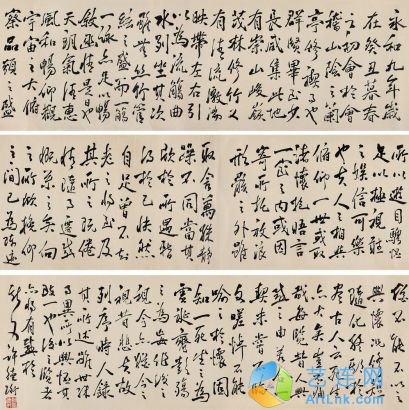 永和九年歲
在癸丑暮春
之初會於會
稽山陰之蘭
亭修禊事也
群賢畢至少
長咸集此地
有崇山峻嶺
茂林修竹又
有清流激湍
映帶左右引
以為流觴曲
水列坐其次
雖無絲竹管
絃之盛一觴
一詠亦足以暢
敘幽情是日也
天朗氣清惠
風和暢仰觀
宇宙之大俯
察品類之盛
所以遊目騁懷
足以極視聽
之娛信可樂
也夫人之相與
俯仰一世或取
諸懷抱悟言
一室之內或因
寄所託放浪
形骸之外雖
取舍萬殊靜
躁不同當其
欣於所遇暫
得於己快然
自足曾不知
老之將至及
其所之既倦
情隨事遷感
慨係之矣向
之所欣俛仰
之間已為陳迹
猶不能不以之
興懷況修短
隨化終期於
盡古人云死生
亦大矣豈不痛
哉每覽昔人興
感之由若合一
契未嘗不臨
文嗟悼不能
喻之於懷固
知一死生為
虛誕齊彭殤
為妄作後之
視今亦猶今之
視昔悲夫故
列敘時人錄
其所述雖世殊
事異所以興懷其
致一也後之覽者
亦將有感於
斯文 許德珩
艺库网
Artlnk.com